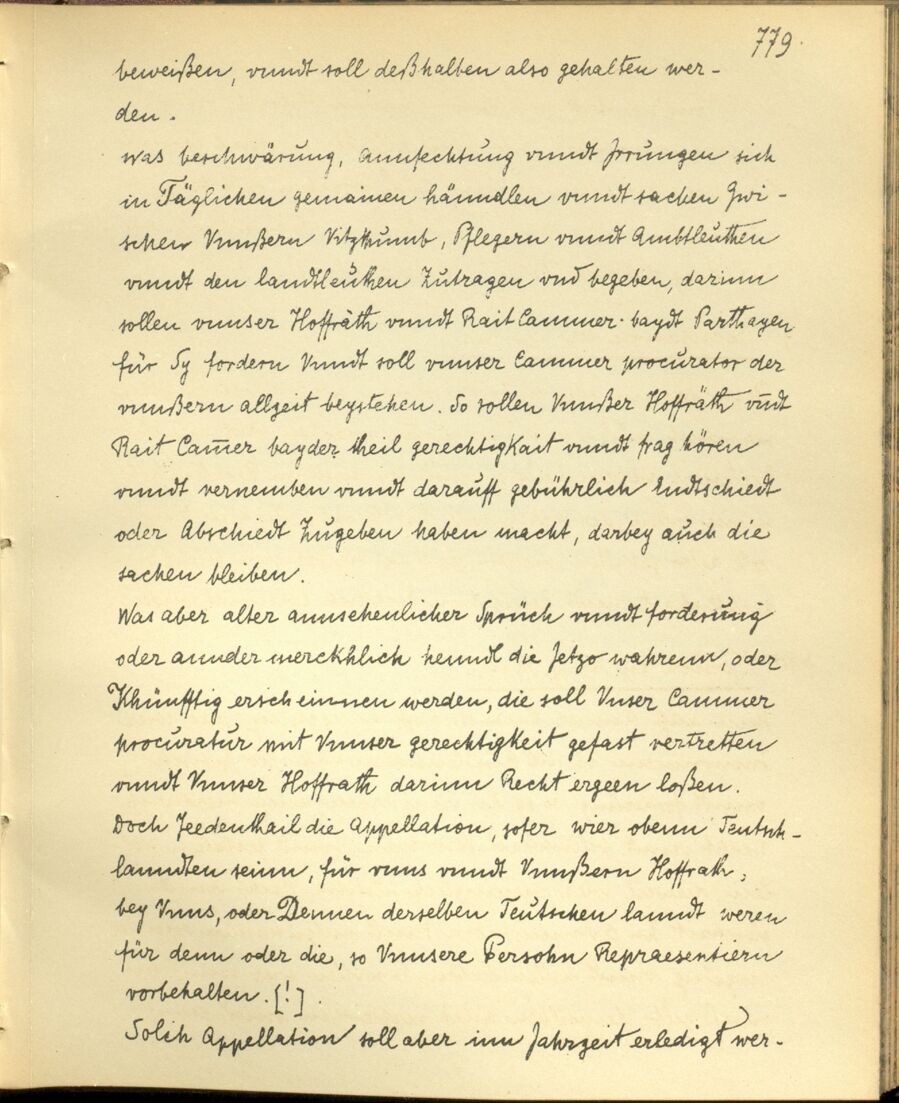 779.
beweißen, vnndt soll deßhalben also gehalten wer-
den.
was beschwärung, Annfechtung vnndt Jrrungen sich
in Täglichen gemainen hänndlen vnndt sachen Zwi-
schen Vnnßern Vitzthumb, Pflegern vnndt Ambtleuthen
vnndt den landtleuthen Zutragen vnd begeben, darinn
sollen vnnser Hoffräth vnndt Rait Cammer baydt Parthayen
für Sy fordern Vnndt soll vnnser Cammer procurator der
vnnßern allzeit beystehen. So sollen Vnnßer Hoffräth vn̄dt
Rait Cam̄er bayder theil gerechtigkait vnndt frag hören
vnndt vernemben vnndt darauff gebührlich Endtschiedt
oder Abschiedt Zugeben haben macht, darbey auch die
sachen bleiben.
Was aber alter annsehenlicher Sprüch vnndt forderung
oder annder merckhlich henndl die Jetzo wahrenn, oder
Khünfftig erscheinnen werden, die soll Vnser Cammer
procuratur mit Vnnser gerechtigkeit gefast vertretten
vnndt Vnnser Hoffrath darinn Recht ergeen loßen.
Doch Jeedenthail die Appellation, sofer wier obenn Teutsch-
lanndten seinn, für vnns vnndt Vnnßern Hoffrath,
bey Vnns, oder Dennen derselben Teutschen lanndt weren
für denn oder die, so Vnnsere Persohn Repraesentiern
vorbehalten. [!]
Solch Appellation soll aber inn Jahrzeit erledigt wer-